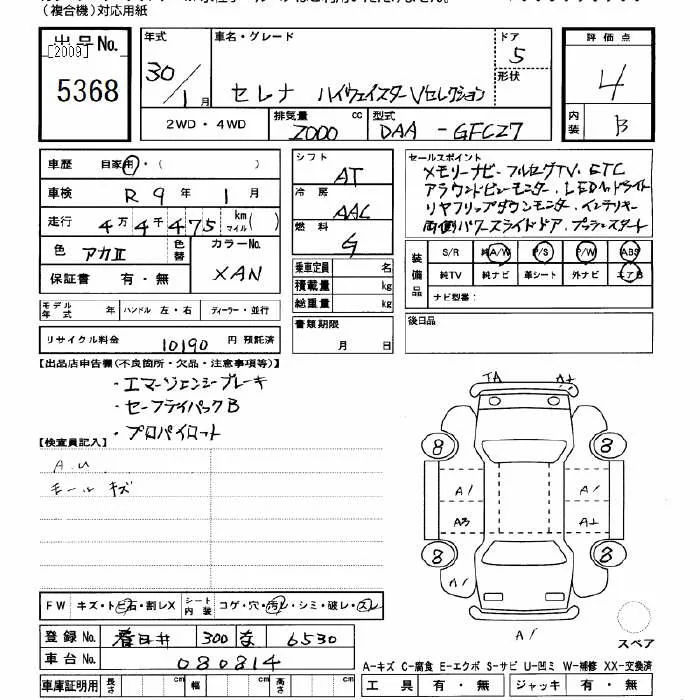 (複合機)対応用紙
出品No.
[2009]
5368
年式
30/1月
車名・グレード
セレナ ハイウェイスターVセレクション
ドア
5
形状
評価点
4
内装
B
2WD・4WD
排気量
2000 cc
型式
DAA - GFC27
車歴 自家用・( )
車検 R 9年 1月
走行 4万4千475 km マイル( )
色 アカⅡ 色替
カラーNo.
XAN
保証書 有・無
モデル年式 年 ハンドル 左・右 ディーラー・並行
リサイクル料金 10190 円 預託済
シフト
AT
冷房
AAC
燃料
G
乗車定員 名
積載量 kg
総重量 kg
書類期限
月 日
セールスポイント
メモリーナビ・フルセグTV・ETC
アラウンドビューモニター・LEDヘッドライト
リヤフリップダウンモニター・インテリキー
両側パワースライドドア・プッシュスタート
装備品
S/R 純A/W P/S P/W ABS
純TV 純ナビ 革シート 外ナビ エアB
ナビ型番:
後日品
【出品店申告欄(不良箇所・欠品・注意事項等)】
・エマージェンシーブレーキ
・セーフティパックB
・プロパイロット
【検査員記入】
A.U
モールキズ
A
8 8
A/ A/
A3
8 8
A/
A/
スペア
FW キズ・トビ石・割レX シート内装 コゲ・穴・汚レ・シミ・破レ・スレ
登録No. 春日井 300 な 6530
車台No. 080814
車庫証明用 長さ cm 幅 cm 高さ cm
A-キズ C-腐食 E-エクボ S-サビ U-凹ミ W-補修 XX-交換済
工具 有・無 ジャッキ 有・無